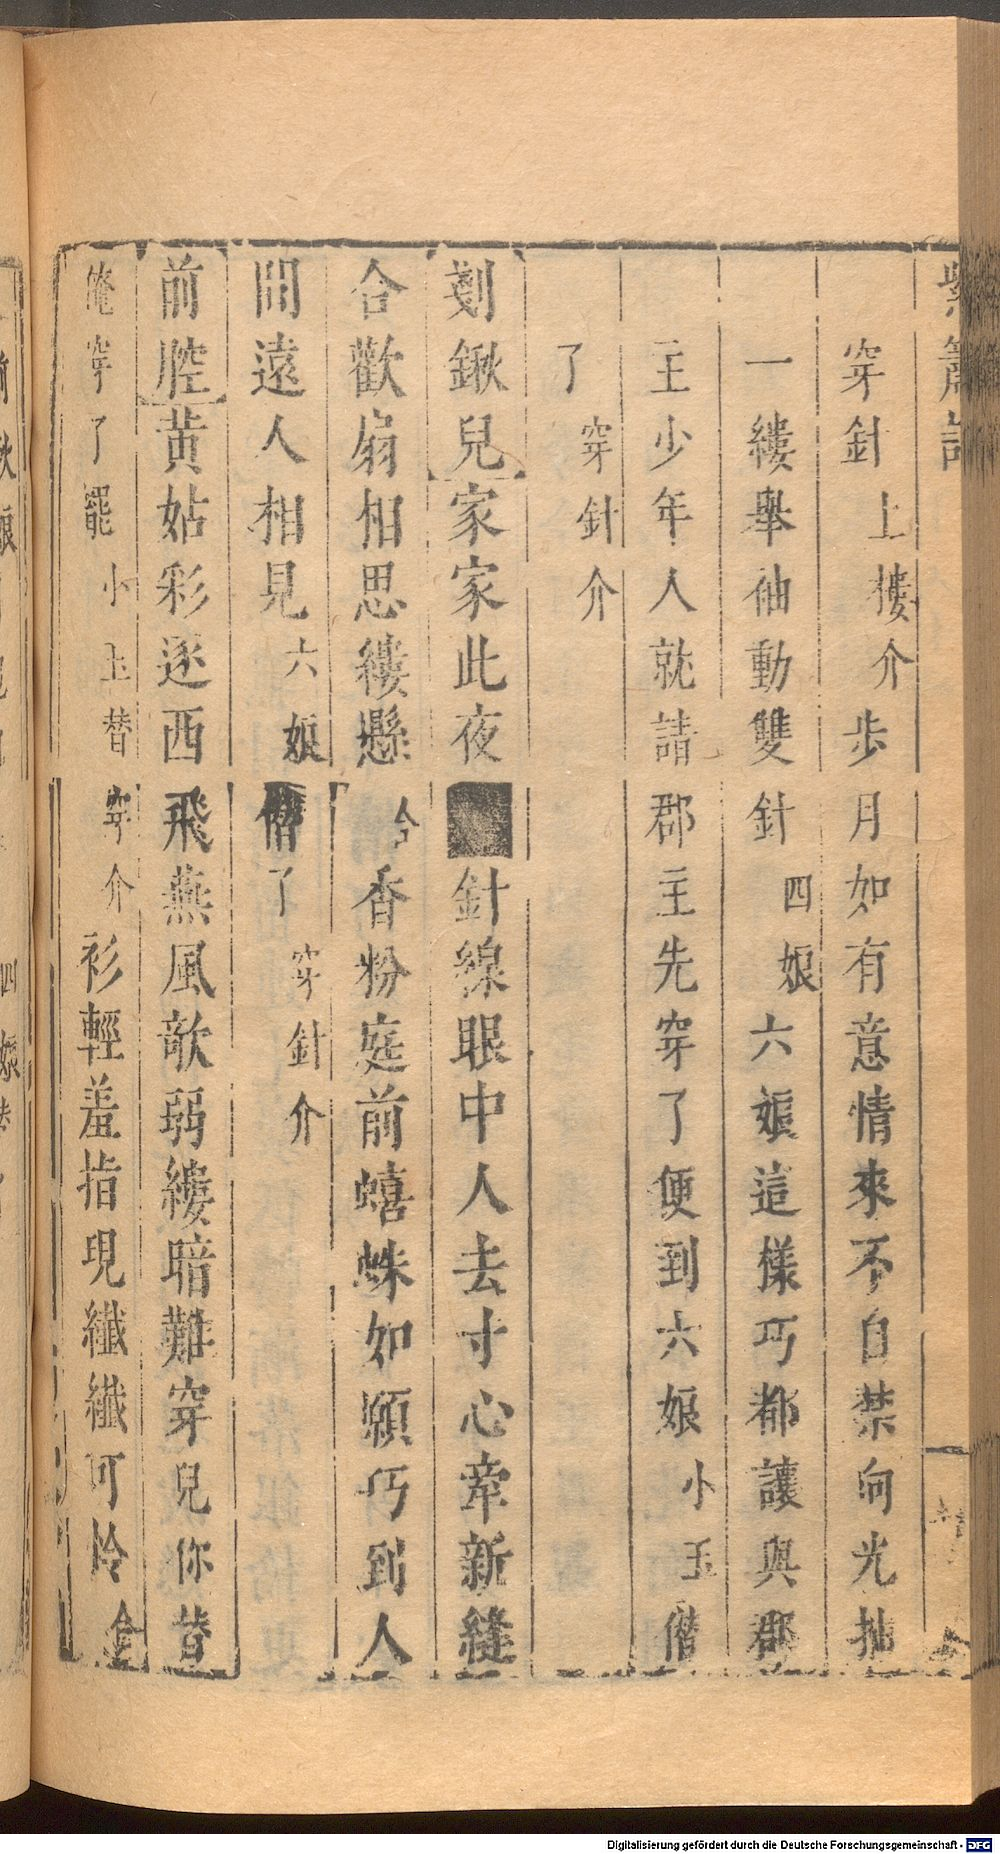 紫簫記
穿針上樓介步月如有意情來不自禁向光抽
一縷舉袖動雙針四娘六娘這樣巧都讓與郡
主少年人就請郡主先穿了便到六娘小玉偕
了穿針介
剗鍬兒家家此夜針線眼中人去寸心牽新縫
合歡扇相思縷懸合香粉庭前蟢蛛如願巧到人
間遠人相見六娘偕了穿針介
前腔黄姑彩逐西飛燕風欹弱縷暗難穿兒你替
俺穿了罷小玉替穿介衫輕羞指現纖纖可怜合
Digitalisierung gefördert durch die Deutsche Forschungsgemeinschaft - DFG